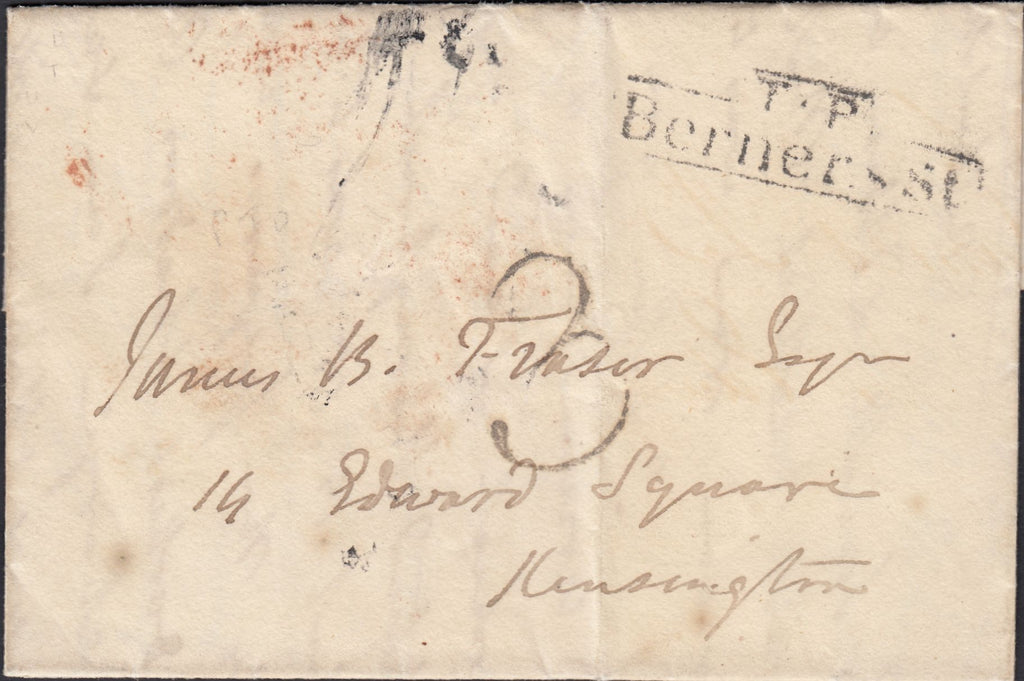 T.P
Berners St
3
James B. Fraser Esqr
14 Edward Square
Kensington